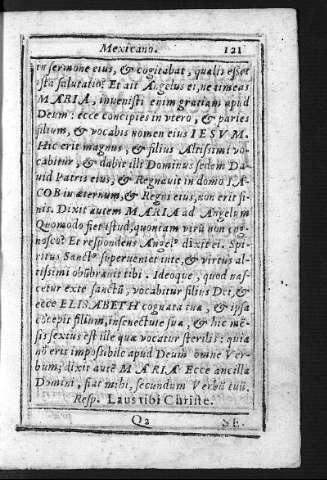 Mexicano. 121
in sermone eius, & cogitabat, qualis esset
ista salutatio? Et ait Angelus ei, ne timeas
MARIA, invenisti enim gratiam apud
Deum: ecce concipies in vtero, & paries
filium, & vocabis nomen eius IESVM.
Hic erit magnus, & filius Altissimi vo-
cabitur, & dabit illi Dominus sedem Da-
uid Patris eius, & Regnauit in domo IA-
COB in æternum, & Regni eius, non erit fi-
nis. Dixit autem MARIA ad Angelum
Quomodo fiet istud, quoniam virũ non cog-
noscu? Et respondens Angel⁹ dixit ei. Spi-
ritus Sanct⁹ superueniet in te, & virtus al-
tissimi obũbrauit tibi. Ideoque, quod nas-
cetur ex te sanctũ, vocabitur filius Dei, &
ecce ELISABETH cognata tua, & ipsa
cõcepit filium, in senectute sua, & hic mẽ-
sis sextus est ille quæ vocatur sterilis: quia
nõ erit impossibile apud Deum omne Ver-
bum; dixit autẽ MARIA Ecce ancilla
Domini, fiat mihi, secundum Verbũ tuũ.
Resp. Laus tibi Christe.
Q2 SE.